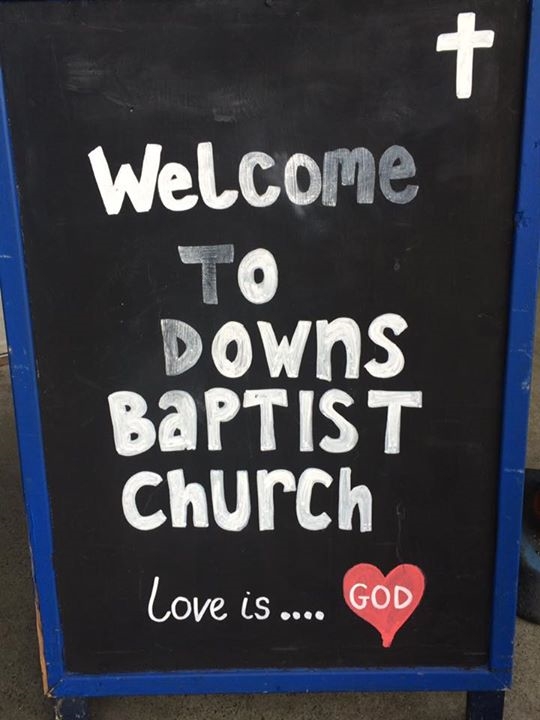 Welcome
To
Downs
Baptist
Church
Love is .... GOD